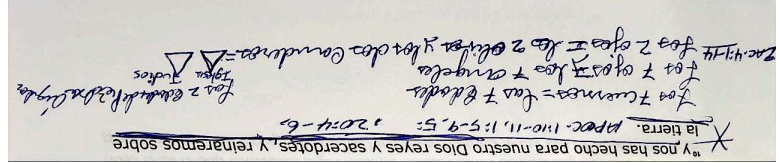 ¹⁰y nos has hecho para nuestro Dios reyes y sacerdotes, y reinaremos sobre
la tierra. APOC. 1:10-11, 1:5-9, 5: , 20:4-6,
Los 7 cuernos = Las 7 Edades
Los 7 ojos = Los 7 angeles
Los 2 Piedra
Zac. 4:1-14 Los 2 ojos = los 2 olivos y los dos Candeleros = Iglesia Judios